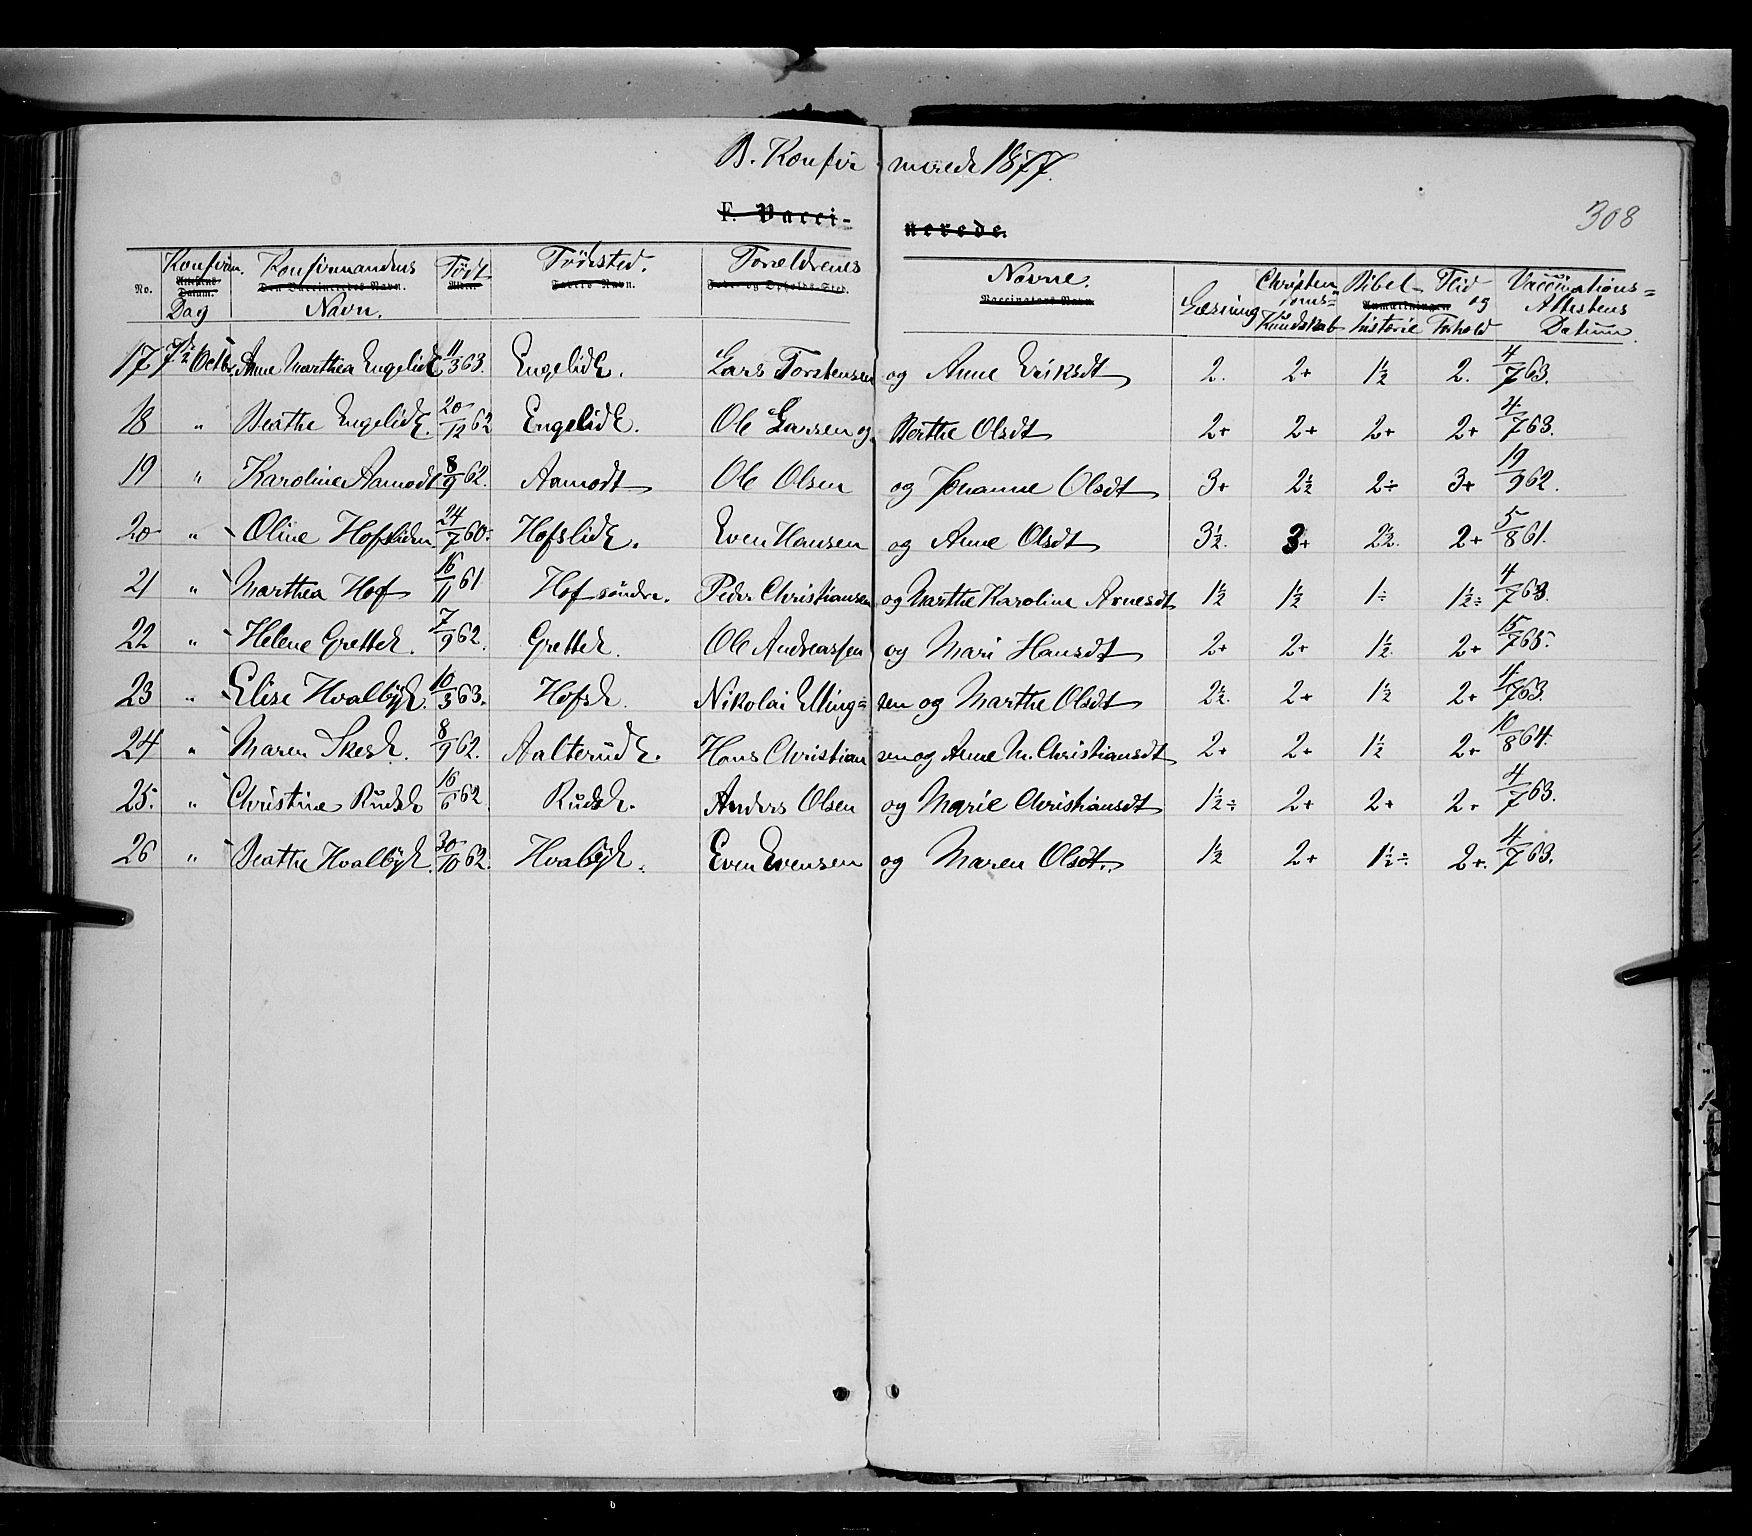 B. Konfirmerede 1877.
308
F. Vaccinerede.
No. Konfirm. Dag Attestens Datum. Konfirmandens Navn. Den Vaccineredes Navn. Født Alder Fødested. Faders Navn. Forældrenes Navne. Føde- og Opholds-Sted. Vaccinators Navn. Læsning Christendoms-Kundskab Bibelhistorie Anmærkninger Flid og Forhold Vaccinations-Attestens Datum.
17 7de Octbr. Anne Marthea EngelidE 11/3 63. EngelidE. Lars Torstensen og Anne Eriksdt 2. 2+ 1½ 2. 4/7 63.
18 " Beathe EngelidE. 20/12 62 EngelidE. Ole Larsen og Berthe Olsdt 2+ 2+ 2+ 2+ 4/7 63.
19 " Karoline Aamodt 8/9 62. Aamodt Ole Olsen og Johanne Olsdt 3+ 2½ 2÷ 3+ 19/9 62.
20 " Oline Hofsliden 24/7 60. HofslidE. Even Hansen og Anne Olsdt 3½. 3+ 2½. 2+ 5/8 61.
21 " Marthea Hof 16/11 61 Hof søndre. Peder Christiansen og Marthe Karoline Arnesdt 1½ 1½ 1÷ 1½÷ 4/7 63.
22 " Helene GrettE. 7/9 62. GrettE. Ole Andreassen og Mari Hansdt 2+ 2+ 1½. 2+ 15/7 65.
23 " Elise HvalbyE. 10/3 63. HofsE. Nikolai Ellingsen og Marthe Olsdt 2½. 2+ 1½ 2+ 4/7 63.
24 " Maren SkesE. 8/9 62. AalterudE. Hans Christiansen og Anne M. Christiansdt 2+ 2+ 1½ 2+ 10/8 64.
25. " Christine RudsE 16/6 62. RudsE. Anders Olsen og Marie Christiansdt 1½÷ 2+ 2+ 2+ 4/7 63.
26 " Beathe HvalbyE. 30/10 62. HvalbyE. Even Evensen og Maren Olsdt. 1½ 2+ 1½÷ 2+. 4/7 63.